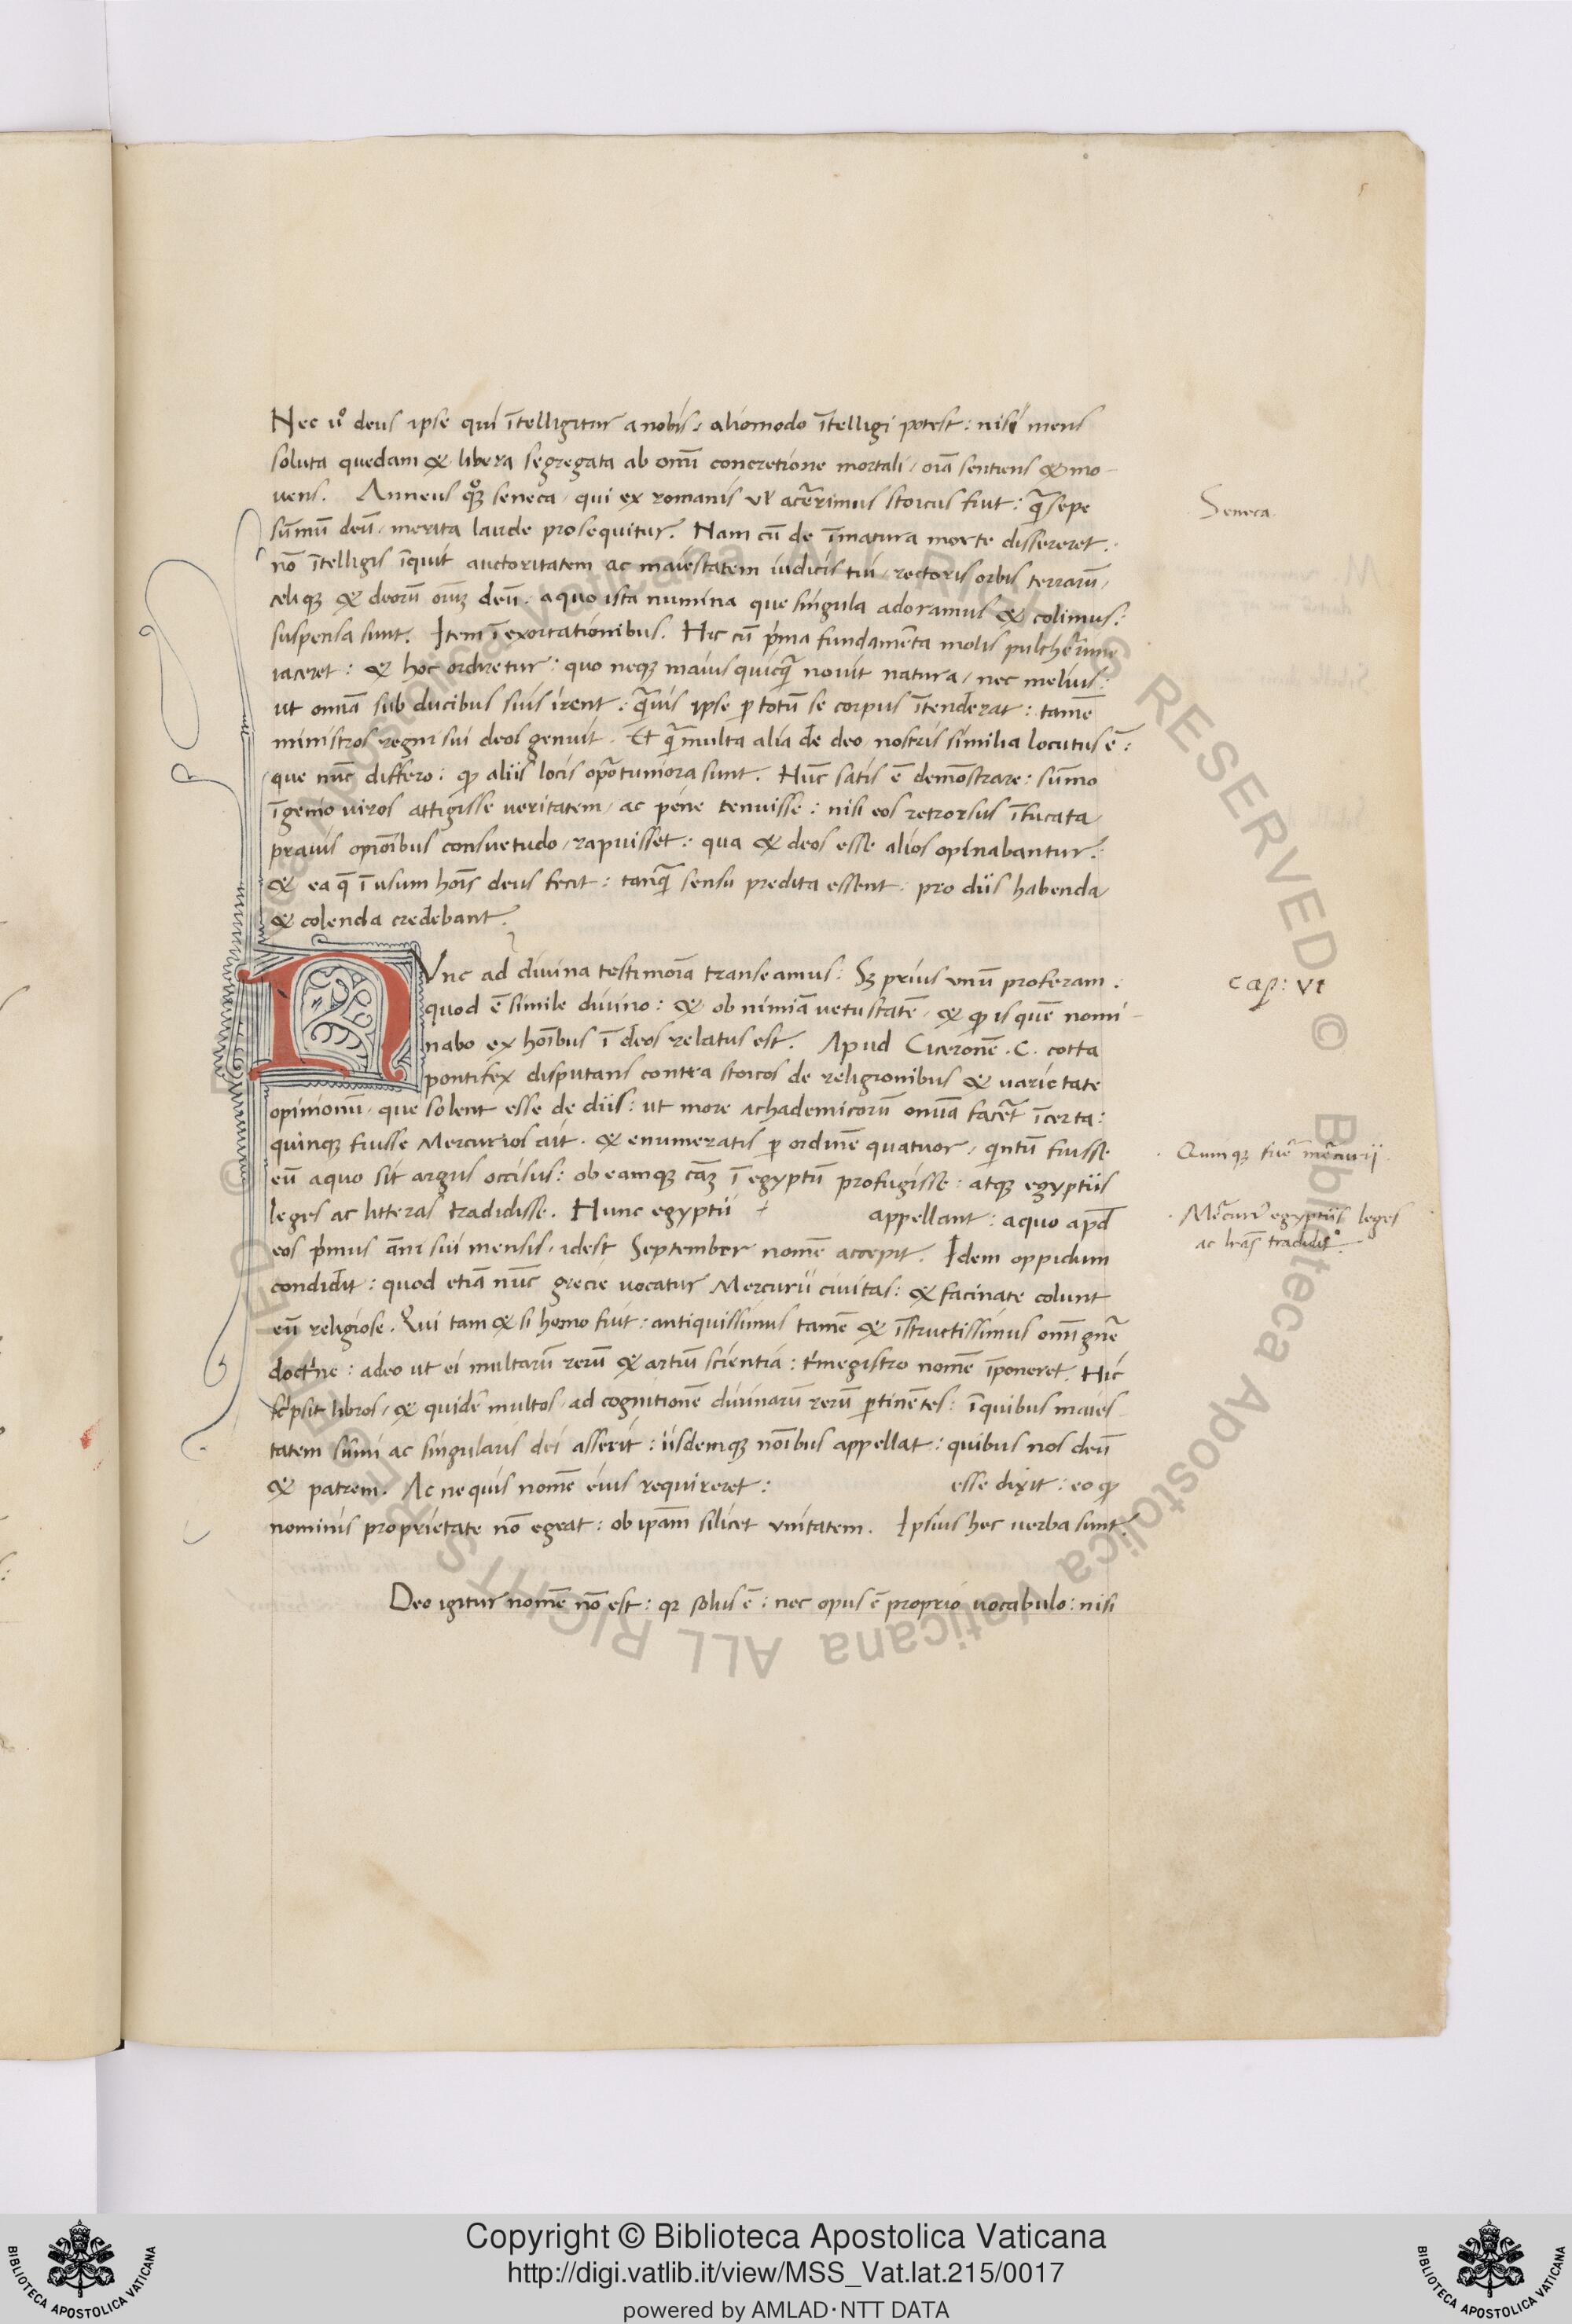 Nec u° deus ipse qui ītelligitur a nobis, aliomodo ītelligi potest: nisi mens
soluta quedam & libera segregata ab omī concretione mortali, oīa sentiens & mo-
uens. Anneus q°ꝫ seneca, qui ex romanis vl acerrimus stoicus fuit: q̄ sepe
summū deū, merita laude prosequitur. Nam cū de īmatura morte dissereret.
nō ītelligis īquit auctoritatem ac maiestatem iudicis tui, rectoris orbis terrarū,
celiqꝫ & deorū oīuꝫ deū. a quo ista numina que singula adoramus & colimus:
suspensa sunt. Item ī exortationibus. Hic cū p̄ma fundamēta molis pulcherrime
iaceret: & hoc ordiretur: quo neqꝫ maius quicq̄ nouit natura, nec melius:
ut omnia sub ducibus suis irent. q̄uis ipse p totū se corpus ītenderat: tamē
ministros regni sui deos genuit. Et q̄ multa alia de deo nostris similia locutus ē:
que nūc differo: qp aliis locis oportuniora sunt. Nūc satis ē demōstrare: sūmo
īgenio viros attigisse veritatem, ac pene tenuisse: nisi eos retrorsus īfucata
prauis opiōibus consuetudo, rapuisset: qua & deos esse alios opinabantur:
& ea q̄ ī usum hoīs deus fecit: tanq̄ sensu predita essent, pro diis habenda
& colenda credebant.
NVnc ad diuina testimoīa transeamus: Sꝫ prius vnū proferam.
quod ē simile diuino: & ob nimiā uetustatē, & qp is quē nomi-
nabo ex hoībus ī deos relatus est. Apud Ciceronē .C. cotta
pontifex disputans contra stoicos de religionibus & uarietate
opinionū, que solent esse de diis: ut more achademicorū omnia facēt īcerta:
quinqꝫ fuisse Mercurios ait. & enumeratis p ordinē quatuor, quintū fuisse
eū a quo sit argus occisus: ob eamqꝫ cāꝫ ī egyptū profugisse: atqꝫ egyptiis
leges ac litteras tradidisse. Hunc egyptii appellant: a quo apd
eos p̄mus anni sui mensis, idest September nomē accepit. Idem oppidum
condidit: quod etiā nūc grecie uocatur Mercurii ciuitas: & facinate colunt
eū religiose. Qui tam & si homo fuit: antiquissimus tamē & īstructissimus omī gn̄e
doct'ne: adeo ut ei multarū rerū & artiū scientia: t'megistro nomē īponeret. Hic
sc'psit libros, & quidē multos, ad cognitionē diuinarū rerū ptinētes: ī quibus maies-
tatem sūmi ac singularis dei asserit: iisdemqꝫ noībus appellat: quibus nos deū
& patrem. Ac ne quis nomē eius requireret: esse dixit: eo qp
nominis proprietate nō egeat: ob ipam silicet vnitatem. Ipsius hec uerba sunt.
Deo igitur nomē nō est: qr solus ē: nec opus ē proprio uocabulo: nisi
Seneca.
Cap: VI
Quinqꝫ fuē mērcurij.
Mērcuri' egyptiis leges
ac lrās tradidit.
© Biblioteca Apostolica Vaticana ALL RIGHTS RESERVED
Copyright © Biblioteca Apostolica Vaticana
http://digi.vatlib.it/view/MSS_Vat.lat.215/0017
powered by AMLAD·NTT DATA
BIBLIOTECA APOSTOLICA VATICANA
BIBLIOTECA APOSTOLICA VATICANA